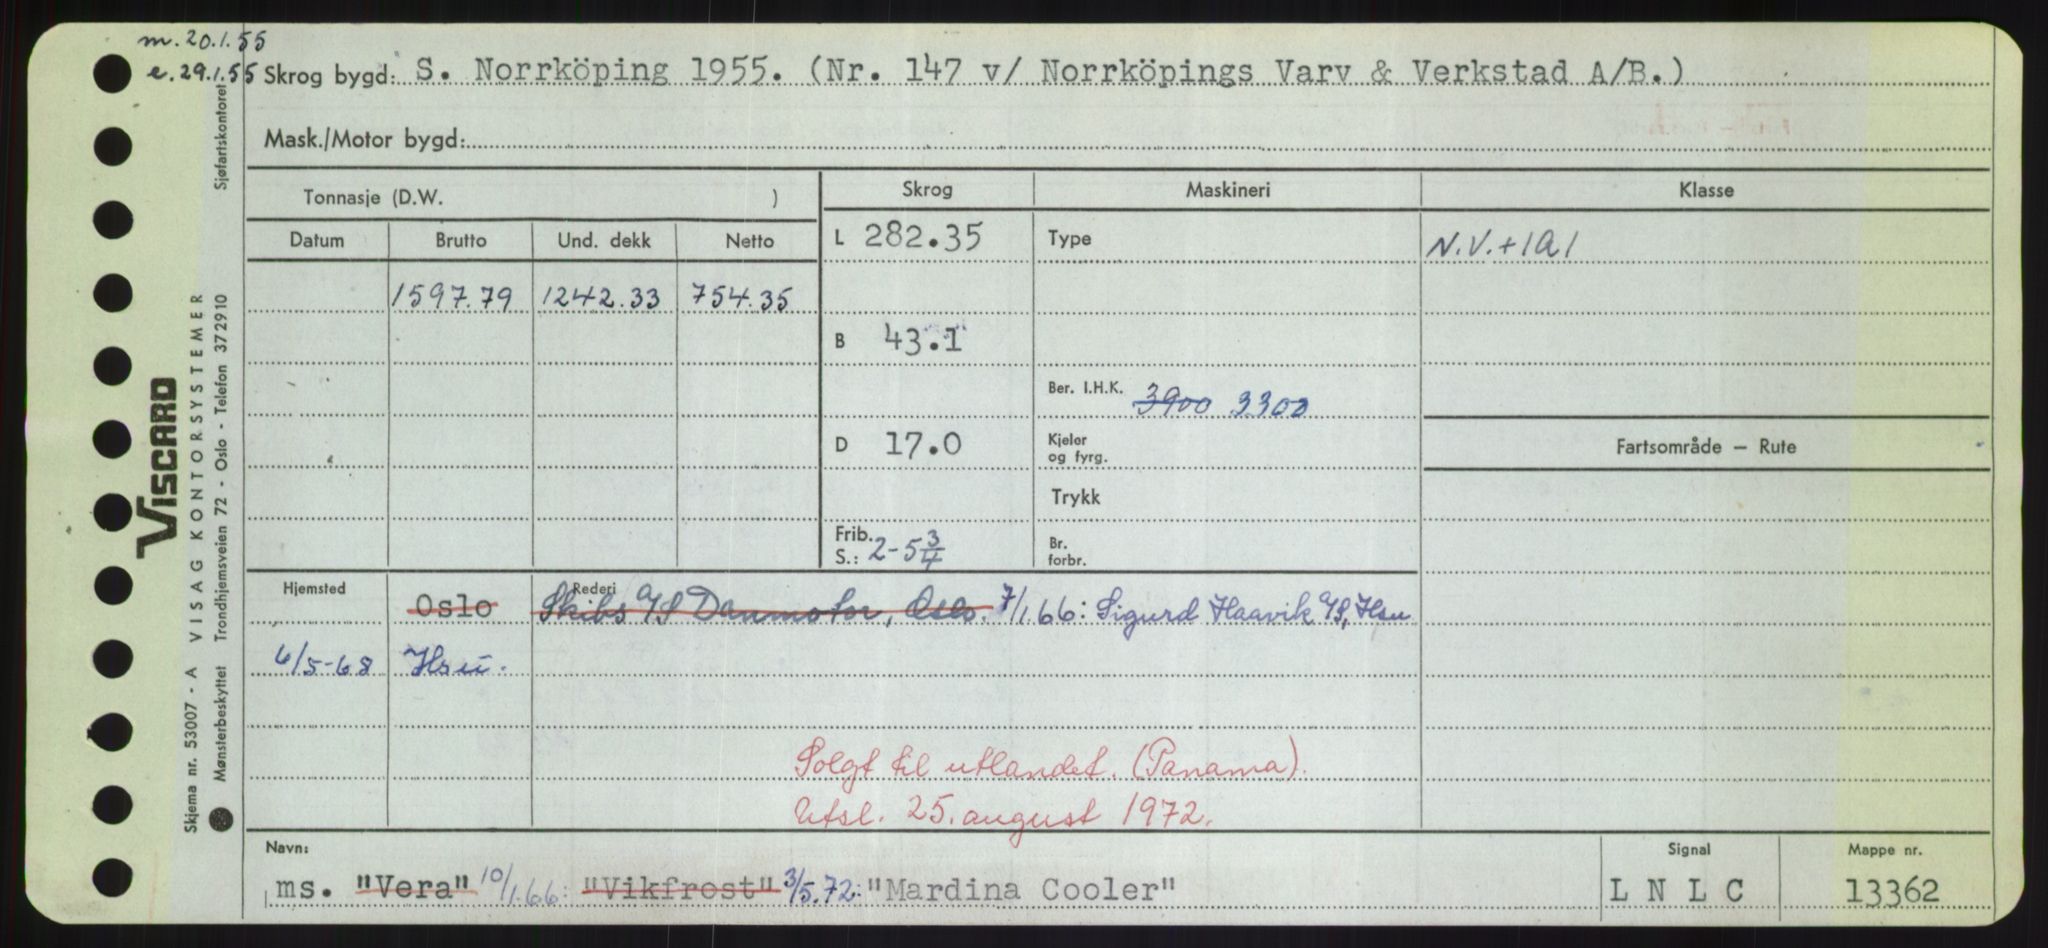 m. 20.1.55
e. 29.1.55 Skrog bygd: S. Norrköping 1955. (Nr. 147 v/ Norrköpings Varv & Verkstad A/B.)
Mask./Motor bygd:
Tonnasje (D.W. ) Skrog Maskineri Klasse
Datum Brutto Und. dekk Netto L 282.35 Type N.V.+1A1
1597.79 1242.33 754.35
B 43.1
Ber. I.H.K. 3900 3300
D 17.0 Kjeler og fyrg. Fartsområde – Rute
Trykk
Frib. S.: 2-5 3/4 Br. forbr.
Hjemsted Oslo Rederi Skibs A/S Danmotor, Oslo. 7/1.66: Sigurd Haavik A/S, Hsu
6/5-68 Hsu.
Solgt til utlandet. (Panama).
Utsl. 25. august 1972.
Navn: Signal Mappe nr.
ms. "Vera" 10/1.66: "Vikfrost" 3/5.72: "Mardina Cooler" L N L C 13362
VISCARD
Skjema nr. 53007 - A VISAG KONTORSYSTEMER
Mønsterbeskyttet Trondhjemsveien 72 - Oslo - Telefon 372910 Sjøfartskontoret